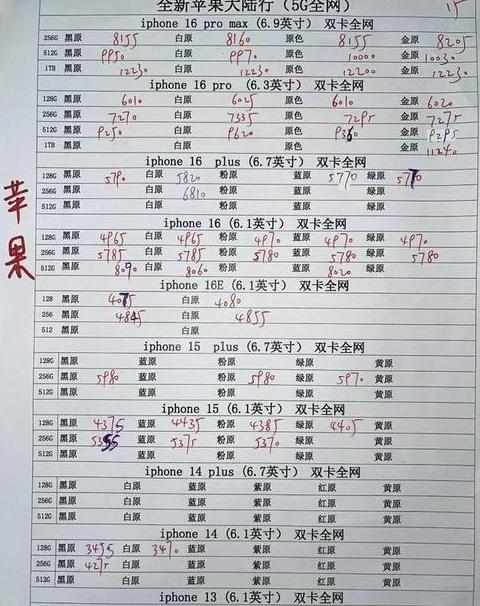 全新苹果大陆行（5G全网）
15
iphone 16 pro max (6.9英寸) 双卡全网
256G 黑原 8155 白原 8160 原色 8155 金原 8205
512G 黑原 9950 白原 9970 原色 10000 金原 10030
1TB 黑原 12230 白原 12230 原色 12200 金原 12230
iphone 16 pro (6.3英寸) 双卡全网
128G 黑原 6010 白原 6025 原色 6010 金原 6020
256G 黑原 7270 白原 7335 原色 7295 金原 7275
512G 黑原 9250 白原 9620 原色 9360 金原 9295
1TB 黑原 白原 原色 金原 11240
iphone 16 plus (6.7英寸) 双卡全网
128G 黑原 5790 白原 5820 粉原 蓝原 5770 绿原 5770
256G 黑原 白原 6810 粉原 蓝原 绿原
512G 黑原 白原 粉原 蓝原 绿原
苹果
iphone 16 (6.1英寸) 双卡全网
128G 黑原 4965 白原 4965 粉原 4970 蓝原 4970 绿原 4970
256G 黑原 5785 白原 5785 粉原 5780 蓝原 5780 绿原 5780
512G 黑原 8090 白原 8060 粉原 蓝原 8020 绿原
iphone 16E (6.1英寸) 双卡全网
128 黑原 4075 白原 4080
256 黑原 4845 白原 4855
512 黑原 白原
iphone 15 plus (6.7英寸) 双卡全网
128G 黑原 蓝原 粉原 绿原 黄原
256G 黑原 5980 蓝原 粉原 5980 绿原 5970 黄原
512G 黑原 蓝原 粉原 绿原 黄原
iphone 15 (6.1英寸) 双卡全网
128G 黑原 4375 蓝原 4435 粉原 4385 绿原 4405 黄原
256G 黑原 5355 蓝原 5375 粉原 5370 绿原 黄原
512G 黑原 蓝原 粉原 绿原 黄原
iphone 14 plus (6.7英寸) 双卡全网
128G 黑原 白原 蓝原 紫原 红原 黄原
256G 黑原 白原 蓝原 紫原 红原 黄原
512G 黑原 白原 蓝原 紫原 红原 黄原
iphone 14 (6.1英寸) 双卡全网
128G 黑原 3455 白原 3470 蓝原 紫原 红原 黄原
256G 黑原 4275 白原 蓝原 紫原 红原 黄原
512G 黑原 白原 蓝原 紫原 红原 黄原
iphone 13 (6.1英寸) 双卡全网